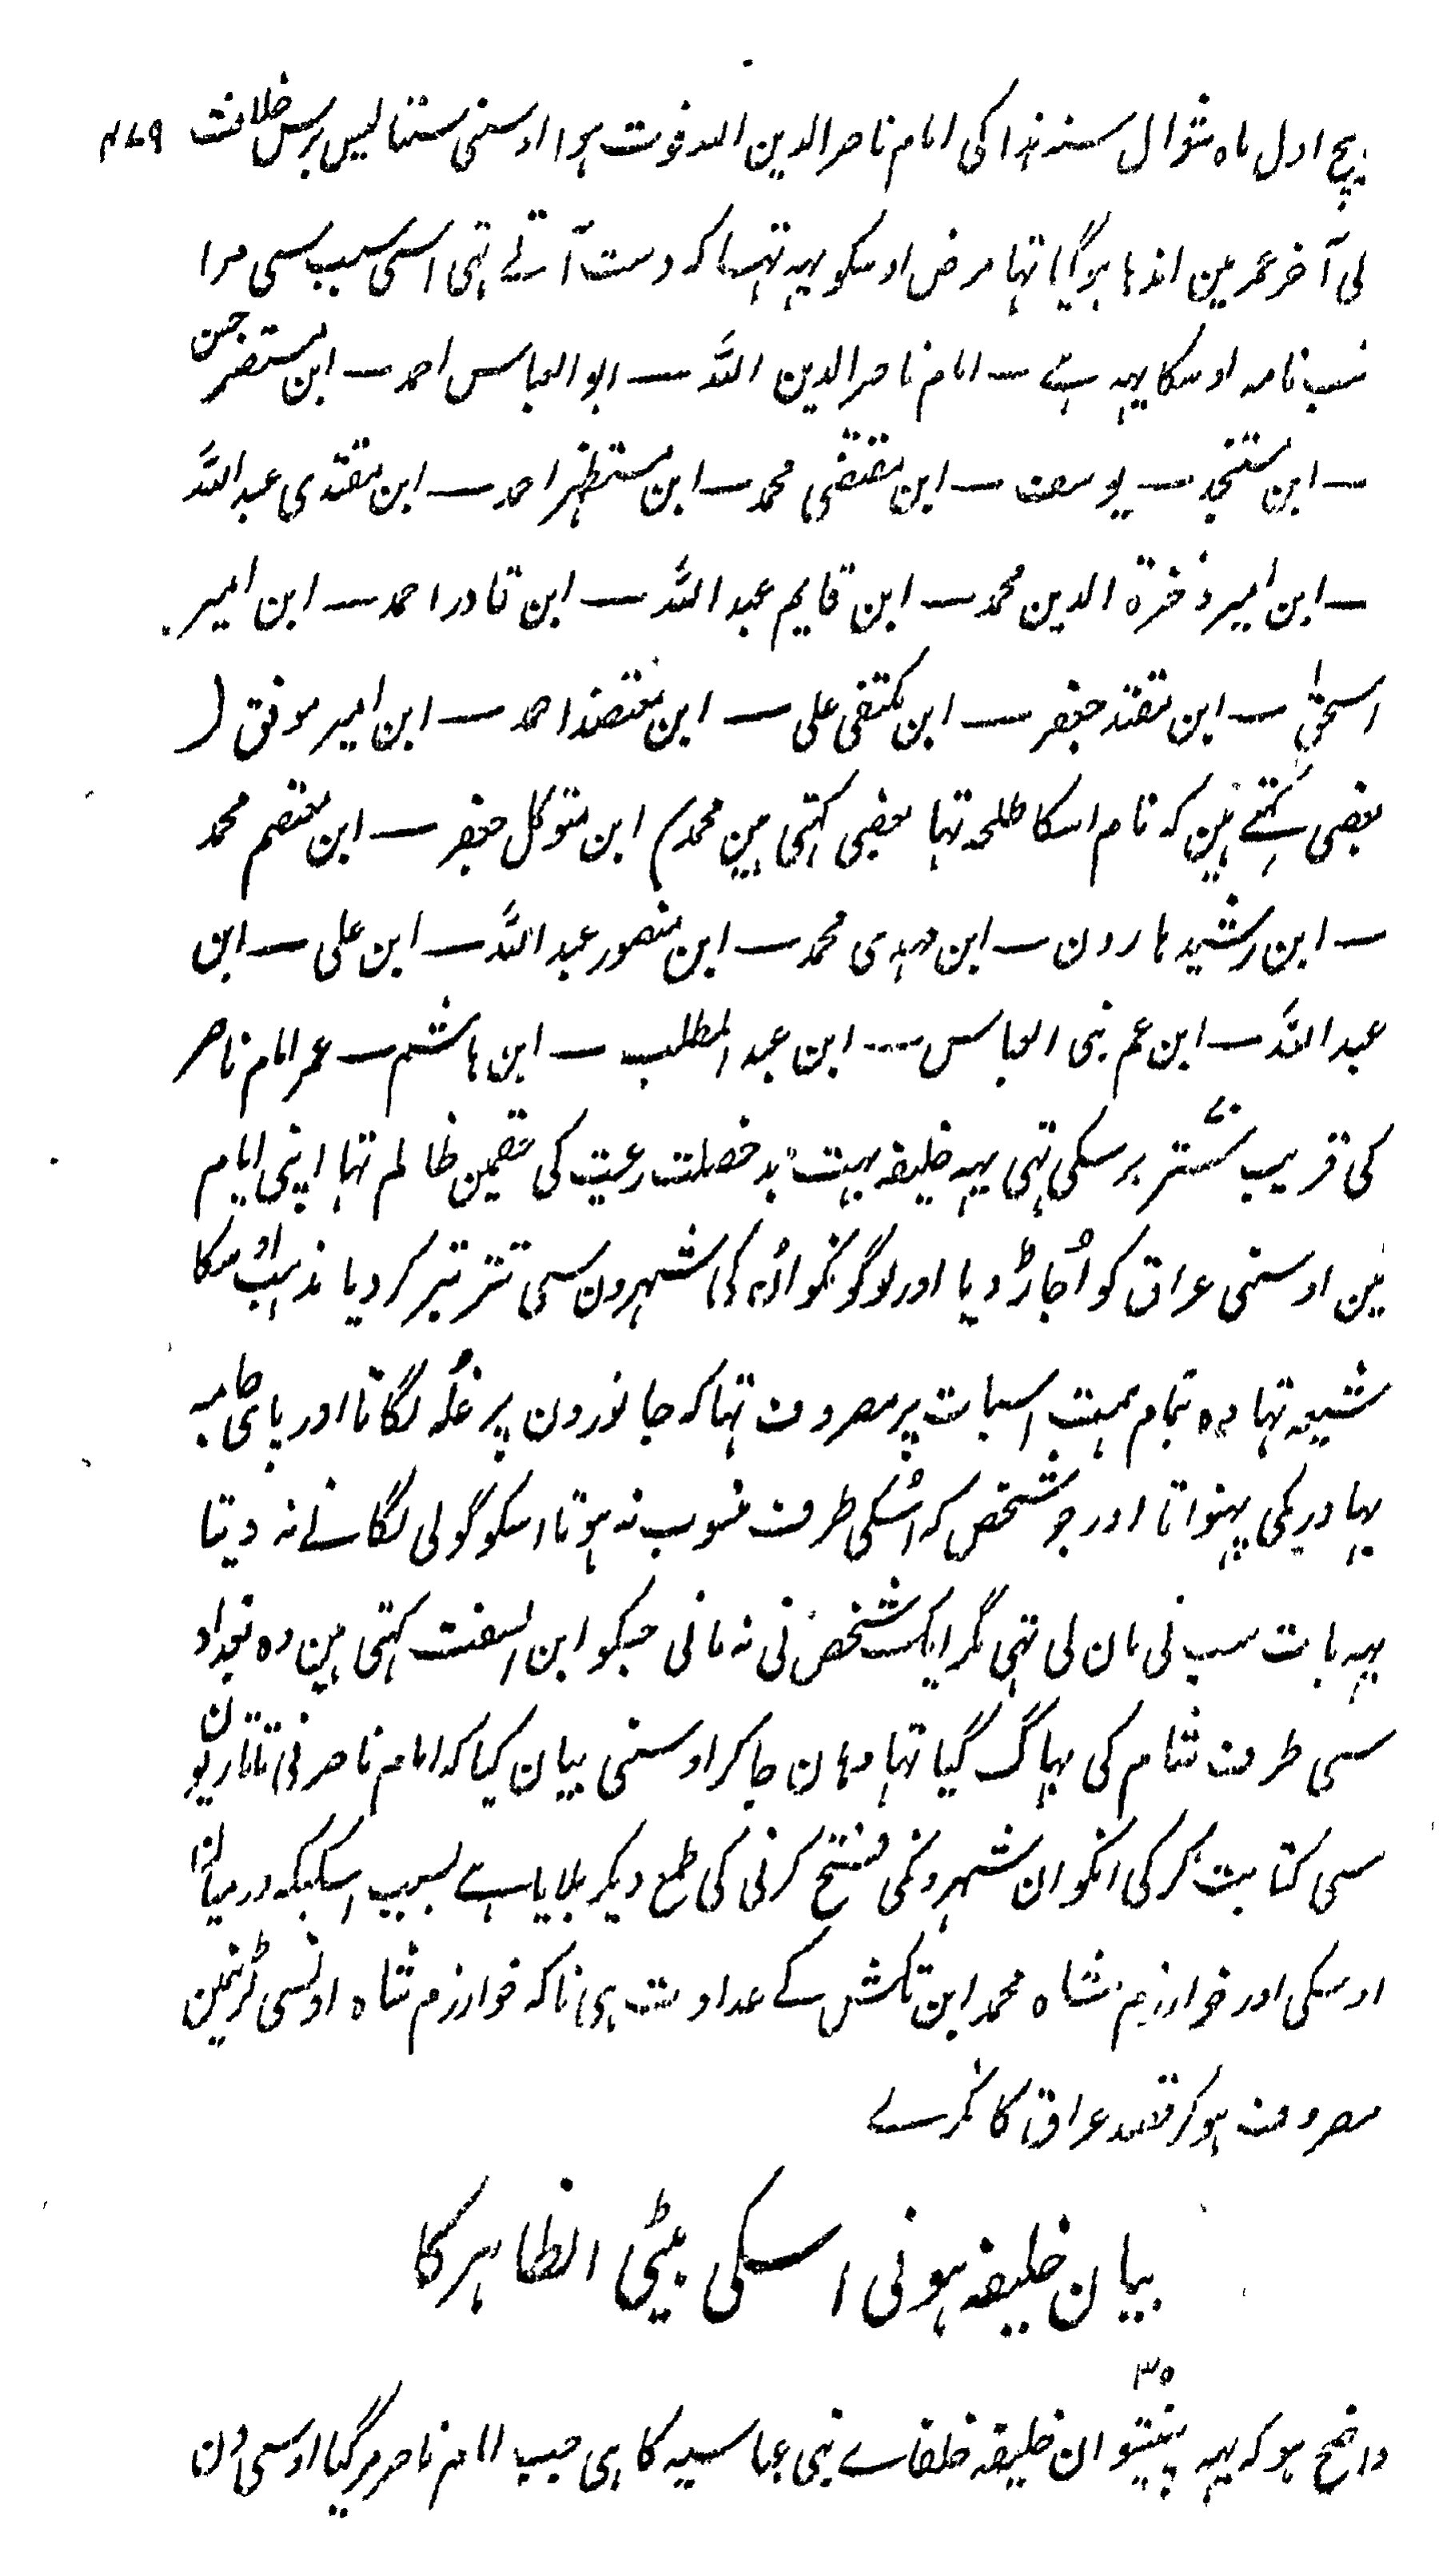 بیچ اول ماہ شوال سنہ ہذا کی امام ناصر الدین اللہ فوت ہوا اوسنی سنتالیس برس خلافت
لی آخر عمر مین اندہا ہوگیا تہا مرض اوسکو یہہ تہا کہ دست آتے تہی اسی سبب سی مرا
نسب نامہ اوسکا یہہ ہے — امام ناصر الدین اللہ — ابو العباس احمد — ابن مستضر حسن
— ابن مستنجد — یوسف — ابن مقتفی محمد — ابن مستظہر احمد — ابن مقتدی عبد اللہ
— ابن امیر ذخرۃ الدین محمد — ابن قایم عبد اللہ — ابن قادر احمد — ابن امیر
اسحٰق — ابن مقتدر جعفر — ابن مکتفی علی — ابن معتضد احمد — ابن امیر موفق (
بعضی کہتے ہین کہ نام اسکا طلحہ تہا بعضی کہتی ہین محمد) ابن متوکل جعفر — ابن معتصم محمد
— ابن رشید ہارون — ابن مہدی محمد — ابن منصور عبد اللہ — ابن علی — ابن
عبد اللہ — ابن عم نبی العباس — ابن عبد المطلب — ابن ہاشم — عمر امام ناصر
کی قریب ستتر برسکی تہی یہہ خلیفہ بہت بد خصلت رعیت کی حقمین ظالم تہا اپنی ایام
مین اوسنی عراق کو اُجاڑ دیا اور لوگونکو اُنکی شہرون سی تتر بتر کر دیا مذہب اوسکا
شیعہ تہا وہ تمام ہمت اسبات پر مصروف تہا کہ جانورون پر غُلہ لگاتا اور پای جامہ
بہادریکی پہنواتا اور جو شخص کہ اُسکی طرف منسوب نہ ہوتا اسکو گولی لگانے نہ دیتا
یہہ بات سب نی مان لی تہی مگر ایک شخص نی نہ مانی جسکو ابن السفت کہتی ہین وہ بغداد
سی طرف شام کی بہاگ گیا تہا وہان جا کر اوسنی بیان کیا کہ امام ناصر نی تاتاریون
سی کتابت کر کی انکو ان شہرونکی فتح کرنی کی طمع دیکر بلایا ہے بسبب اسکیکہ درمیان
اوسکی اور خوارزم شاہ محمد ابن تکش کے عداوت ہی تاکہ خوارزم شاہ اونسی لڑنیمین
مصروف ہو کر قصد عراق کا نکرے
بیان خلیفہ ہونی اسکی بیٹی الظاہر کا
۳۵
واضح ہو کہ یہہ پنتیسوان خلیفہ خلفاے بنی عباسیہ کا ہی جب امام ناصر مر گیا اوسی دن